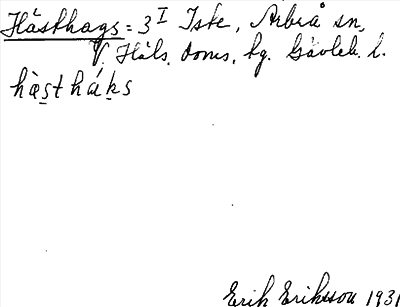 Hästhags = 3 I Iste, Arbrå sn,
V. Häls. doms, hg. Gävleb. l.
hàs̠t hák̠s
Erik Eriksson 1931